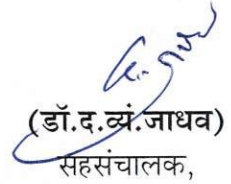 (डॉ.द.व्यं.जाधव)
सहसंचालक,